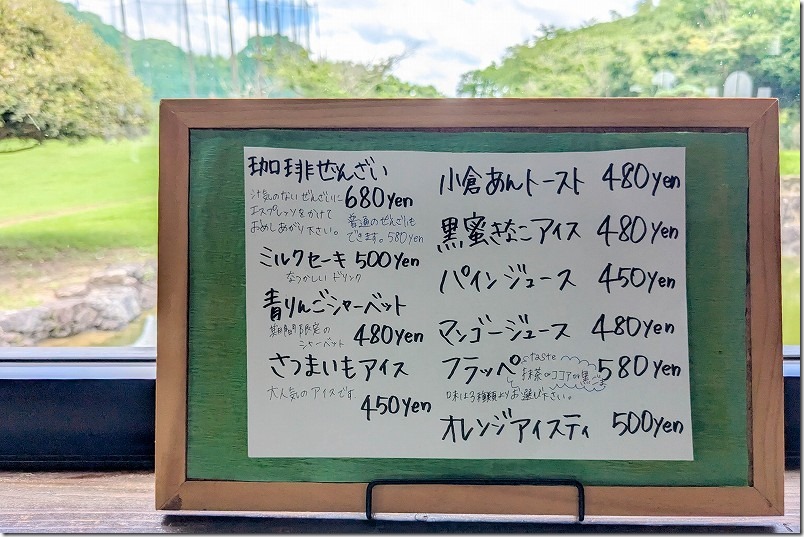 珈琲ぜんざい
680yen
汁気のないぜんざいに
エスプレッソをかけて
おめしあがり下さい。
普通のぜんざいも
できます。580yen
ミルクセーキ 500yen
なつかしいドリンク
青りんごシャーベット
期間限定の
シャーベット
480yen
さつまいもアイス
大人気のアイスです
450yen
小倉あんトースト 480yen
黒蜜きなこアイス 480yen
パインジュース 450yen
マンゴージュース 480yen
フラッペ 580yen
taste
抹茶orココアor黒ごま
味は3種類よりお選び下さい。
オレンジアイスティ 500yen